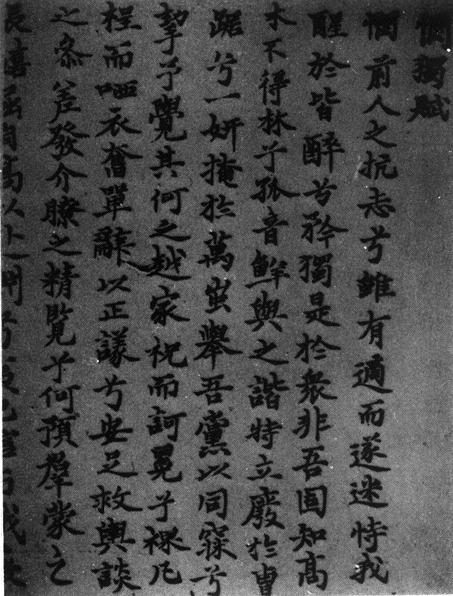 憫獨賦
憫前人之抗志兮雖有適而遂迷恃我
醒於皆醉兮矜獨是於衆非吾固知高
木不得林予孤音鮮與之諧特立廢於曹
踞兮一妍掩於萬蚩舉吾黨以同寐兮
挈予覺其何之越家祝而訶冕予裸凡
裎而哂衣奮單辭以正議兮安足救輿談
之紊差發介瞭之精覽予何預羣蒙之